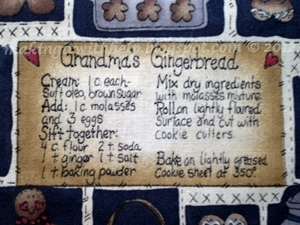 makingitwithhelp.blogspot.com © 20
Grandma's Gingerbread
Cream: 1 c. each-
Soft oleo, brown sugar
Add: 1 c. molasses
and 3 eggs
Sift together:
4 c. flour 2 t soda
1 t ginger 1 t salt
1 t baking powder
Mix dry ingredients
with molasses mixture
Roll on lightly floured
surface and cut with
cookie cutters.
Bake on lightly greased
Cookie sheet at 350°